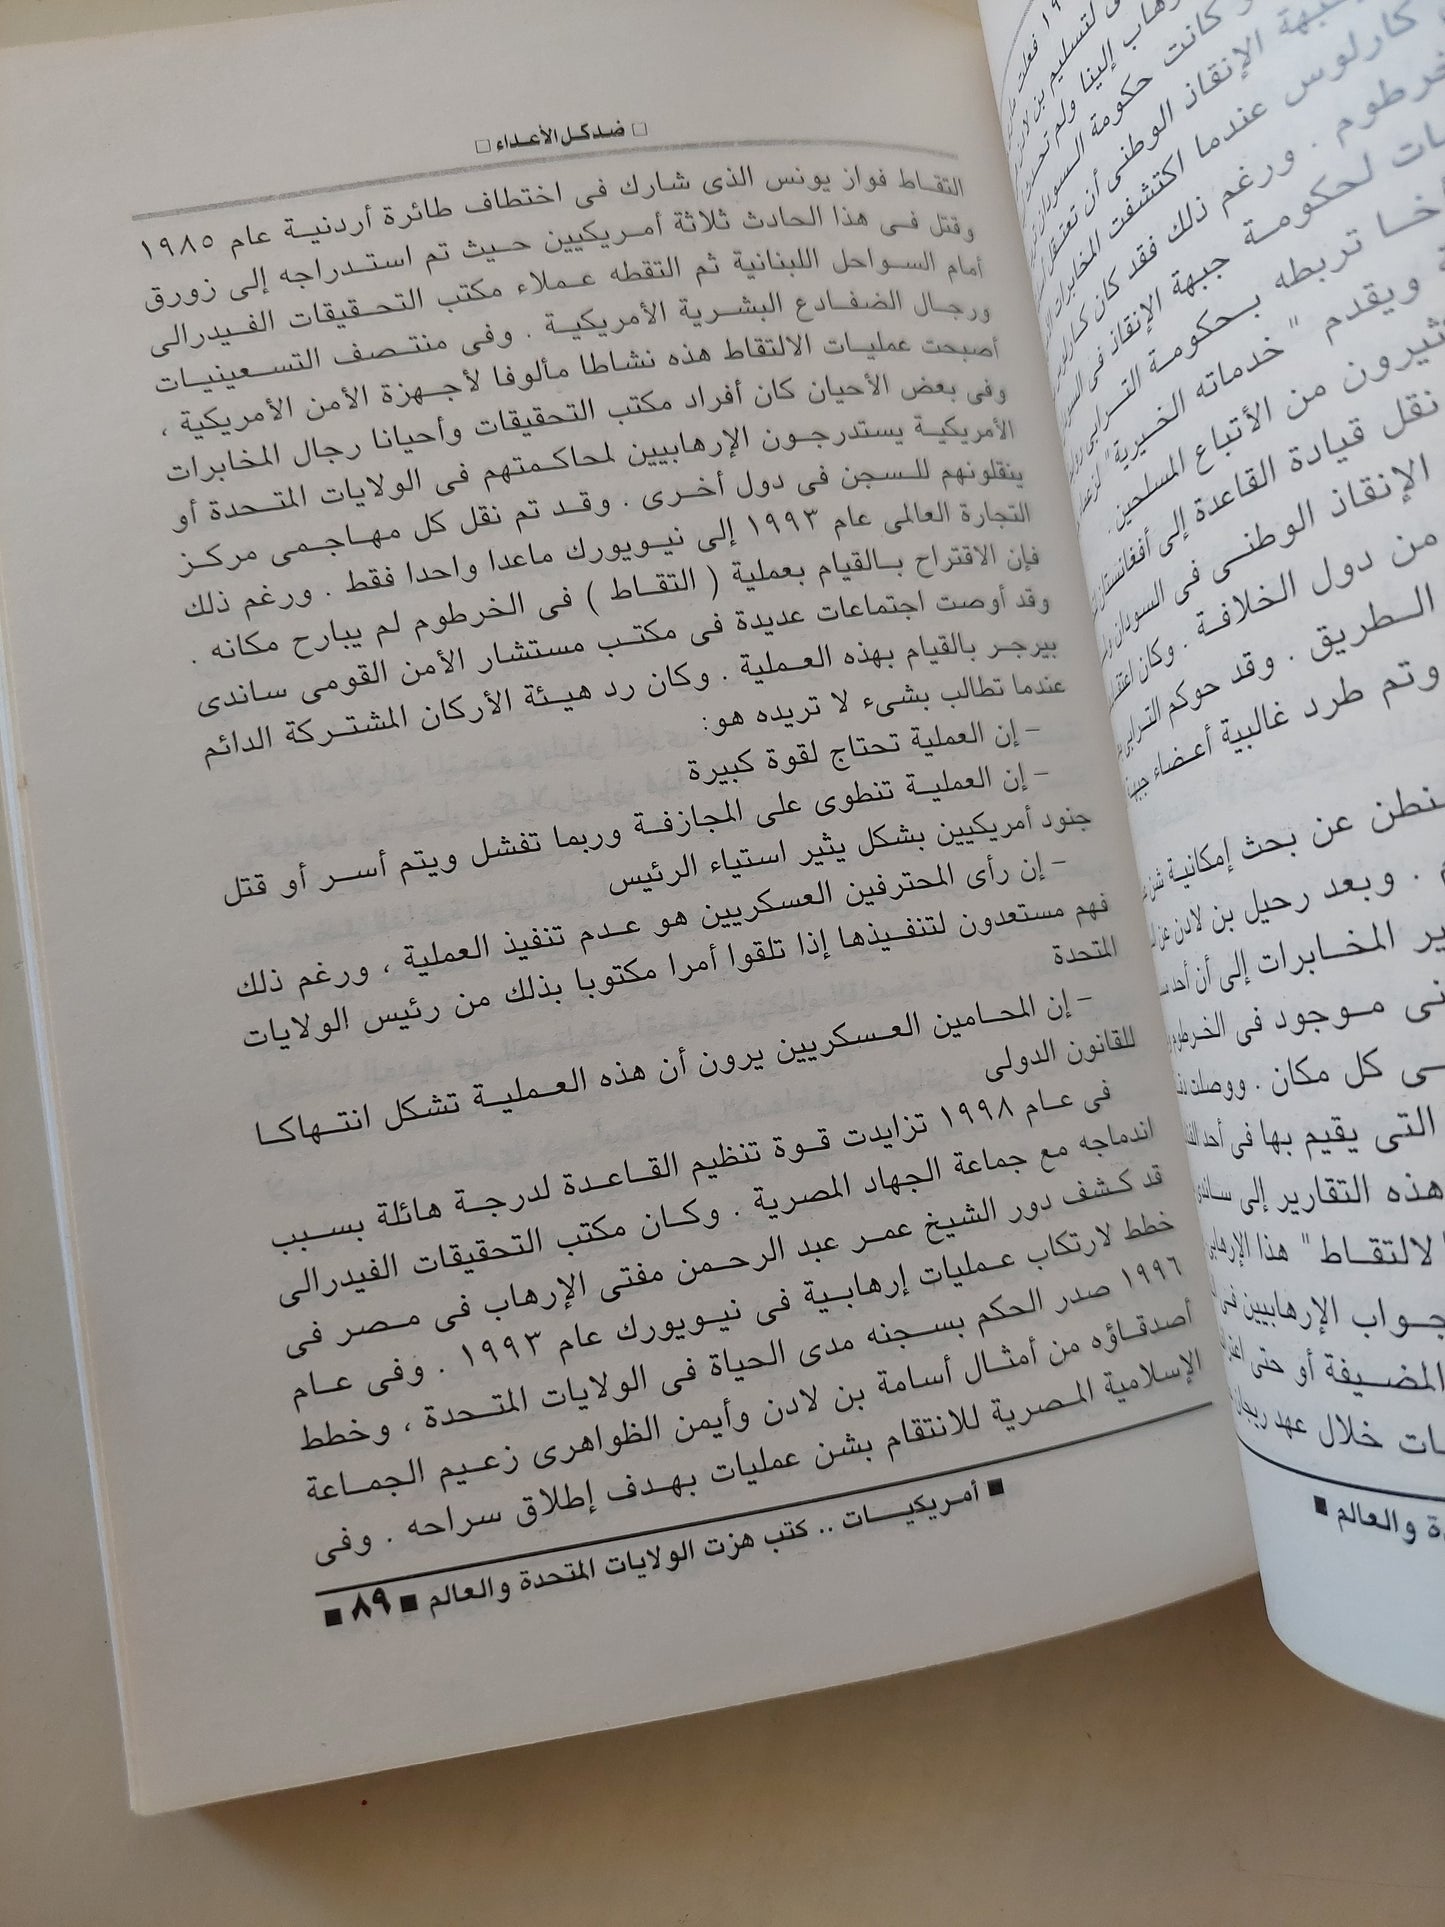 □ ضد كل الأعداء □
التقاط فواز يونس الذى شارك فى اختطاف طائرة أردنية عام ١٩٨٥
وقتل فى هذا الحادث ثلاثة أمريكيين حيث تم استدراجه إلى زورق
أمام السواحل اللبنانية ثم التقطه عملاء مكتب التحقيقات الفيدرالى
ورجال الضفادع البشرية الأمريكية . وفى منتصف التسعينيات
أصبحت عمليات الالتقاط هذه نشاطا مألوفا لأجهزة الأمن الأمريكية ،
وفى بعض الأحيان كان أفراد مكتب التحقيقات وأحيانا رجال المخابرات
الأمريكية يستدرجون الإرهابيين لمحاكمتهم فى الولايات المتحدة أو
ينقلونهم للسجن فى دول أخرى . وقد تم نقل كل مهاجمى مركز
التجارة العالمى عام ١٩٩٣ إلى نيويورك ماعدا واحدا فقط . ورغم ذلك
فإن الاقتراح بالقيام بعملية ( التقاط ) فى الخرطوم لم يبارح مكانه .
وقد أوصت اجتماعات عديدة فى مكتب مستشار الأمن القومى ساندى
بيرجر بالقيام بهذه العملية . وكان رد هيئة الأركان المشتركة الدائم
عندما تطالب بشىء لا تريده هو:
– إن العملية تحتاج لقوة كبيرة
– إن العملية تنطوى على المجازفة وربما تفشل ويتم أسر أو قتل
جنود أمريكيين بشكل يثير استياء الرئيس
– إن رأى المحترفين العسكريين هو عدم تنفيذ العملية ، ورغم ذلك
فهم مستعدون لتنفيذها إذا تلقوا أمرا مكتوبا بذلك من رئيس الولايات
المتحدة
– إن المحامين العسكريين يرون أن هذه العملية تشكل انتهاكا
للقانون الدولى
فى عام ١٩٩٨ تزايدت قوة تنظيم القاعدة لدرجة هائلة بسبب
اندماجه مع جماعة الجهاد المصرية . وكان مكتب التحقيقات الفيدرالى
قد كشف دور الشيخ عمر عبد الرحمن مفتى الإرهاب فى مصر فى
خطط لارتكاب عمليات إرهابية فى نيويورك عام ١٩٩٣ . وفى عام
١٩٩٦ صدر الحكم بسجنه مدى الحياة فى الولايات المتحدة ، وخطط
أصدقاؤه من أمثال أسامة بن لادن وأيمن الظواهرى زعيم الجماعة
الإسلامية المصرية للانتقام بشن عمليات بهدف إطلاق سراحه . وفى
■ أمريكيات .. كتب هزت الولايات المتحدة والعالم ■ ٨٩ ■
لتسليم بن لادن
إلينا ولم تحدث
وكانت حكومة السودان
جبهة الإنقاذ الوطنى أن تعتقل
كارلوس عندما اكتشفت المخابرات
ورغم ذلك فقد كان كارلوس
لحكومة جبهة الإنقاذ فى
تربطه بحكومة الترابى
ويقدم " خدماته الخيرية "
من الأتباع المسلحين .
نقل قيادة القاعدة إلى أفغانستان
الإنقاذ الوطنى فى السودان
من دول الخلافة . وكان
الطريق . وقد حوكم الترابى
وتم طرد غالبية أعضاء
عن بحث إمكانية شن
. وبعد رحيل بن لادن عن
المخابرات إلى أن أحد
موجود فى الخرطوم
كل مكان . ووصلت
التى يقيم بها فى أحد
هذه التقارير إلى ساندى
لالتقاط " هذا
الإرهابيين فى
المضيفة أو حتى
خلال عهد ريجان
والعالم ■